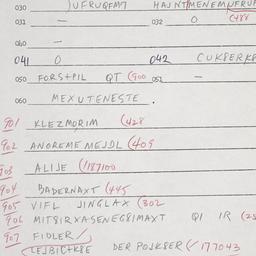 030 JUFRUQFM7 HAJNTMENEMNFRUF
031 – 032 0 (488
040 –
041 0 042 CUK8ERK8
050 FORS+PIL QT (900 052 –
060 MEXUTENESTE .
901 KLEZMORIM (428
902 ANOREMEMEJDL (409
903 ALIJE (1187100
904 BADERNAXT (445
905 VIFL JINGLAX (302
906 MIT8IRXASENEG8IMAXT QI IR (25
907 FIDLER
(LEJBIC+K8E DER POJK8ER (177043